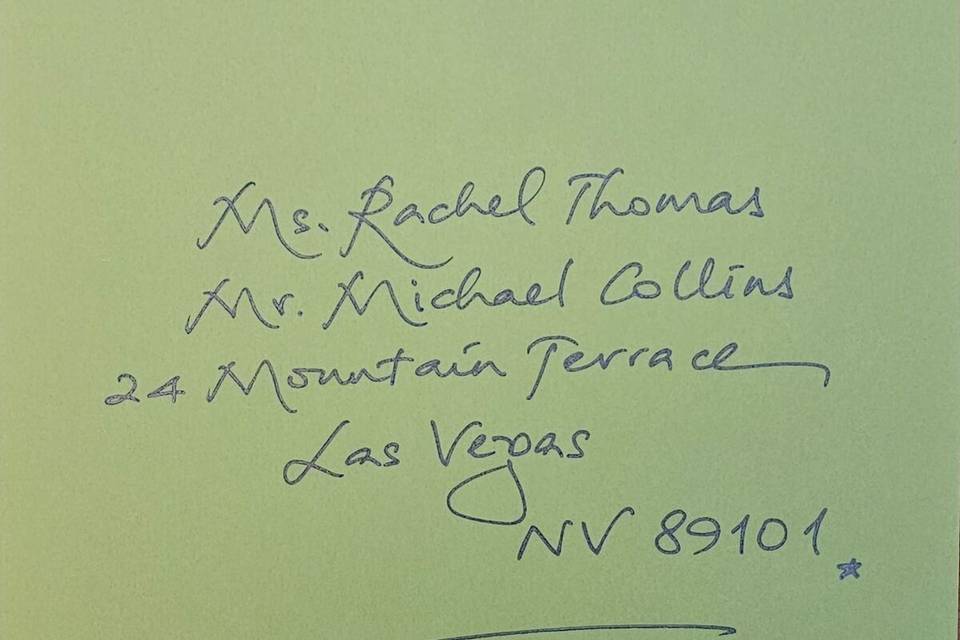 Ms. Rachel Thomas
Mr. Michael Collins
24 Mountain Terrace
Las Vegas
NV 89101